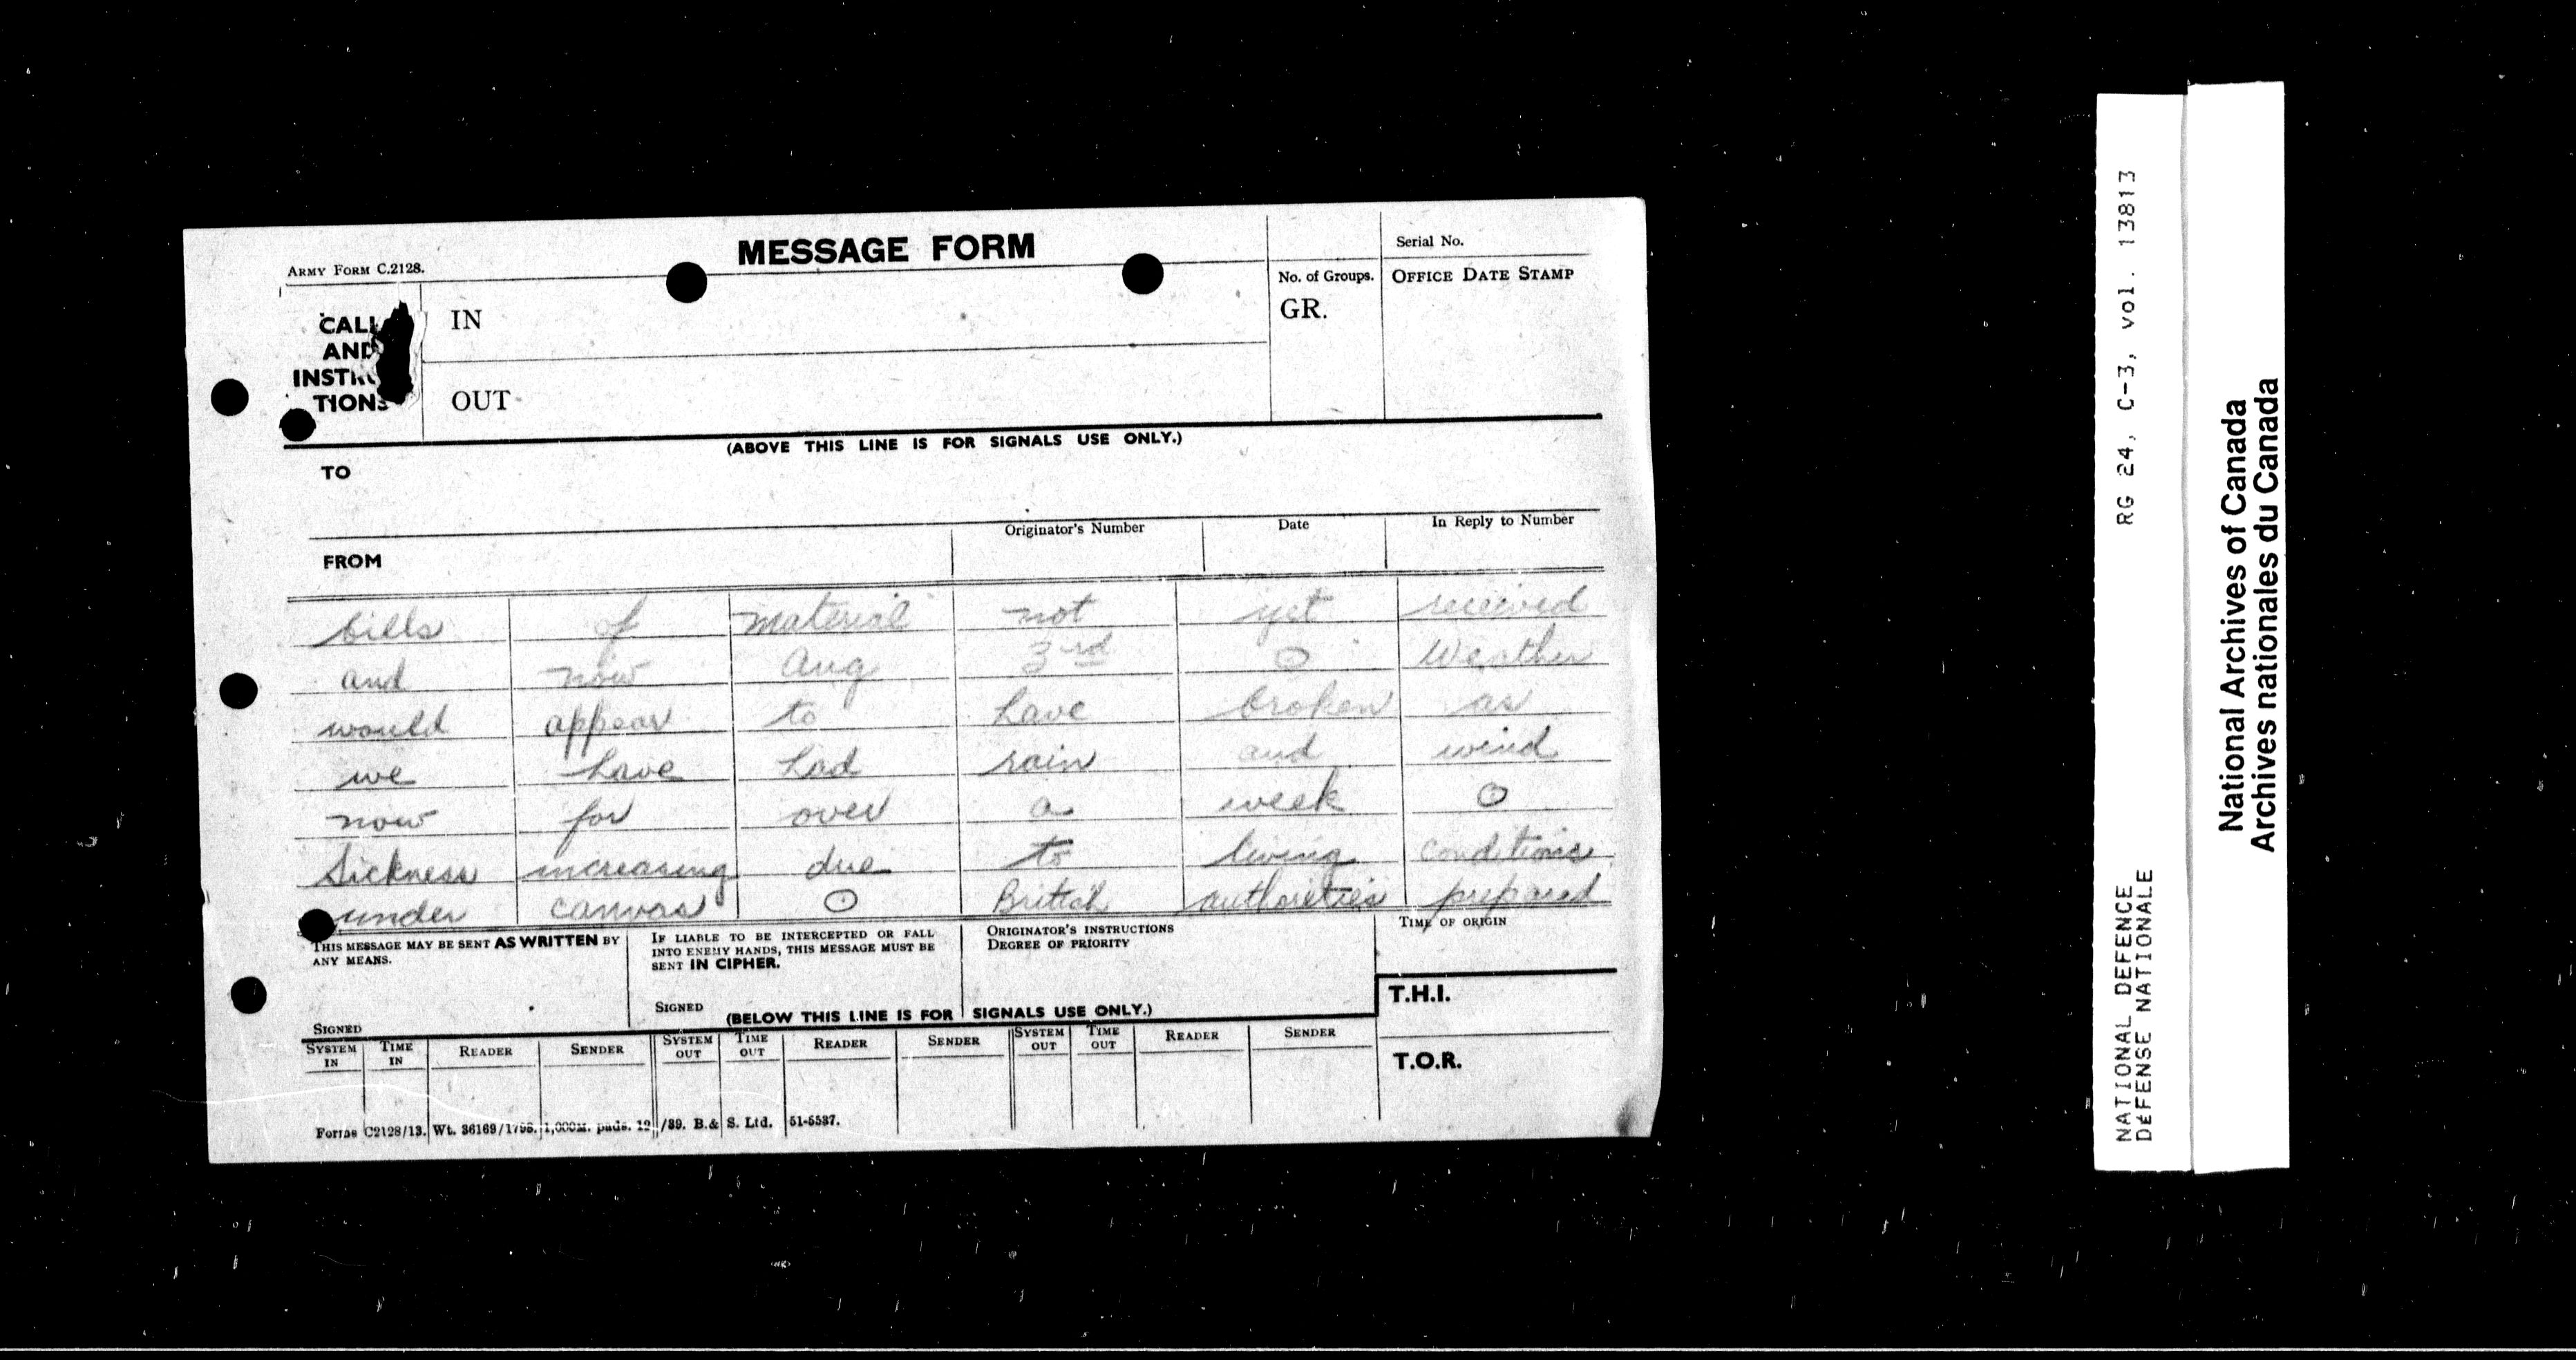 MESSAGE FORM
ARMY FORM C.2128.
Serial No.
No. of Groups.
GR.
OFFICE DATE STAMP
CALL
AND
INSTRUC
TIONS
IN
OUT
(ABOVE THIS LINE IS FOR SIGNALS USE ONLY.)
TO
FROM
Originator's Number
Date
In Reply to Number
bills of material not yet received
and now Aug 3rd O Weather
would appear to have broken as
we have had rain and wind
now for over a week O
Sickness increasing due to living conditions
under canvas O British authorities prepared
THIS MESSAGE MAY BE SENT AS WRITTEN BY
ANY MEANS.
SIGNED
IF LIABLE TO BE INTERCEPTED OR FALL
INTO ENEMY HANDS, THIS MESSAGE MUST BE
SENT IN CIPHER.
SIGNED
ORIGINATOR'S INSTRUCTIONS
DEGREE OF PRIORITY
TIME OF ORIGIN
T.H.I.
T.O.R.
(BELOW THIS LINE IS FOR SIGNALS USE ONLY.)
SYSTEM IN
TIME IN
READER
SENDER
SYSTEM OUT
TIME OUT
READER
SENDER
SYSTEM OUT
TIME OUT
READER
SENDER
Forms C2128/13. Wt. 36169/1798. 1,000M. pads. 12/39. B.& S. Ltd. 51-5537.
NATIONAL DEFENCE RG 24, C-3, vol. 13813
DéFENSE NATIONALE
National Archives of Canada
Archives nationales du Canada